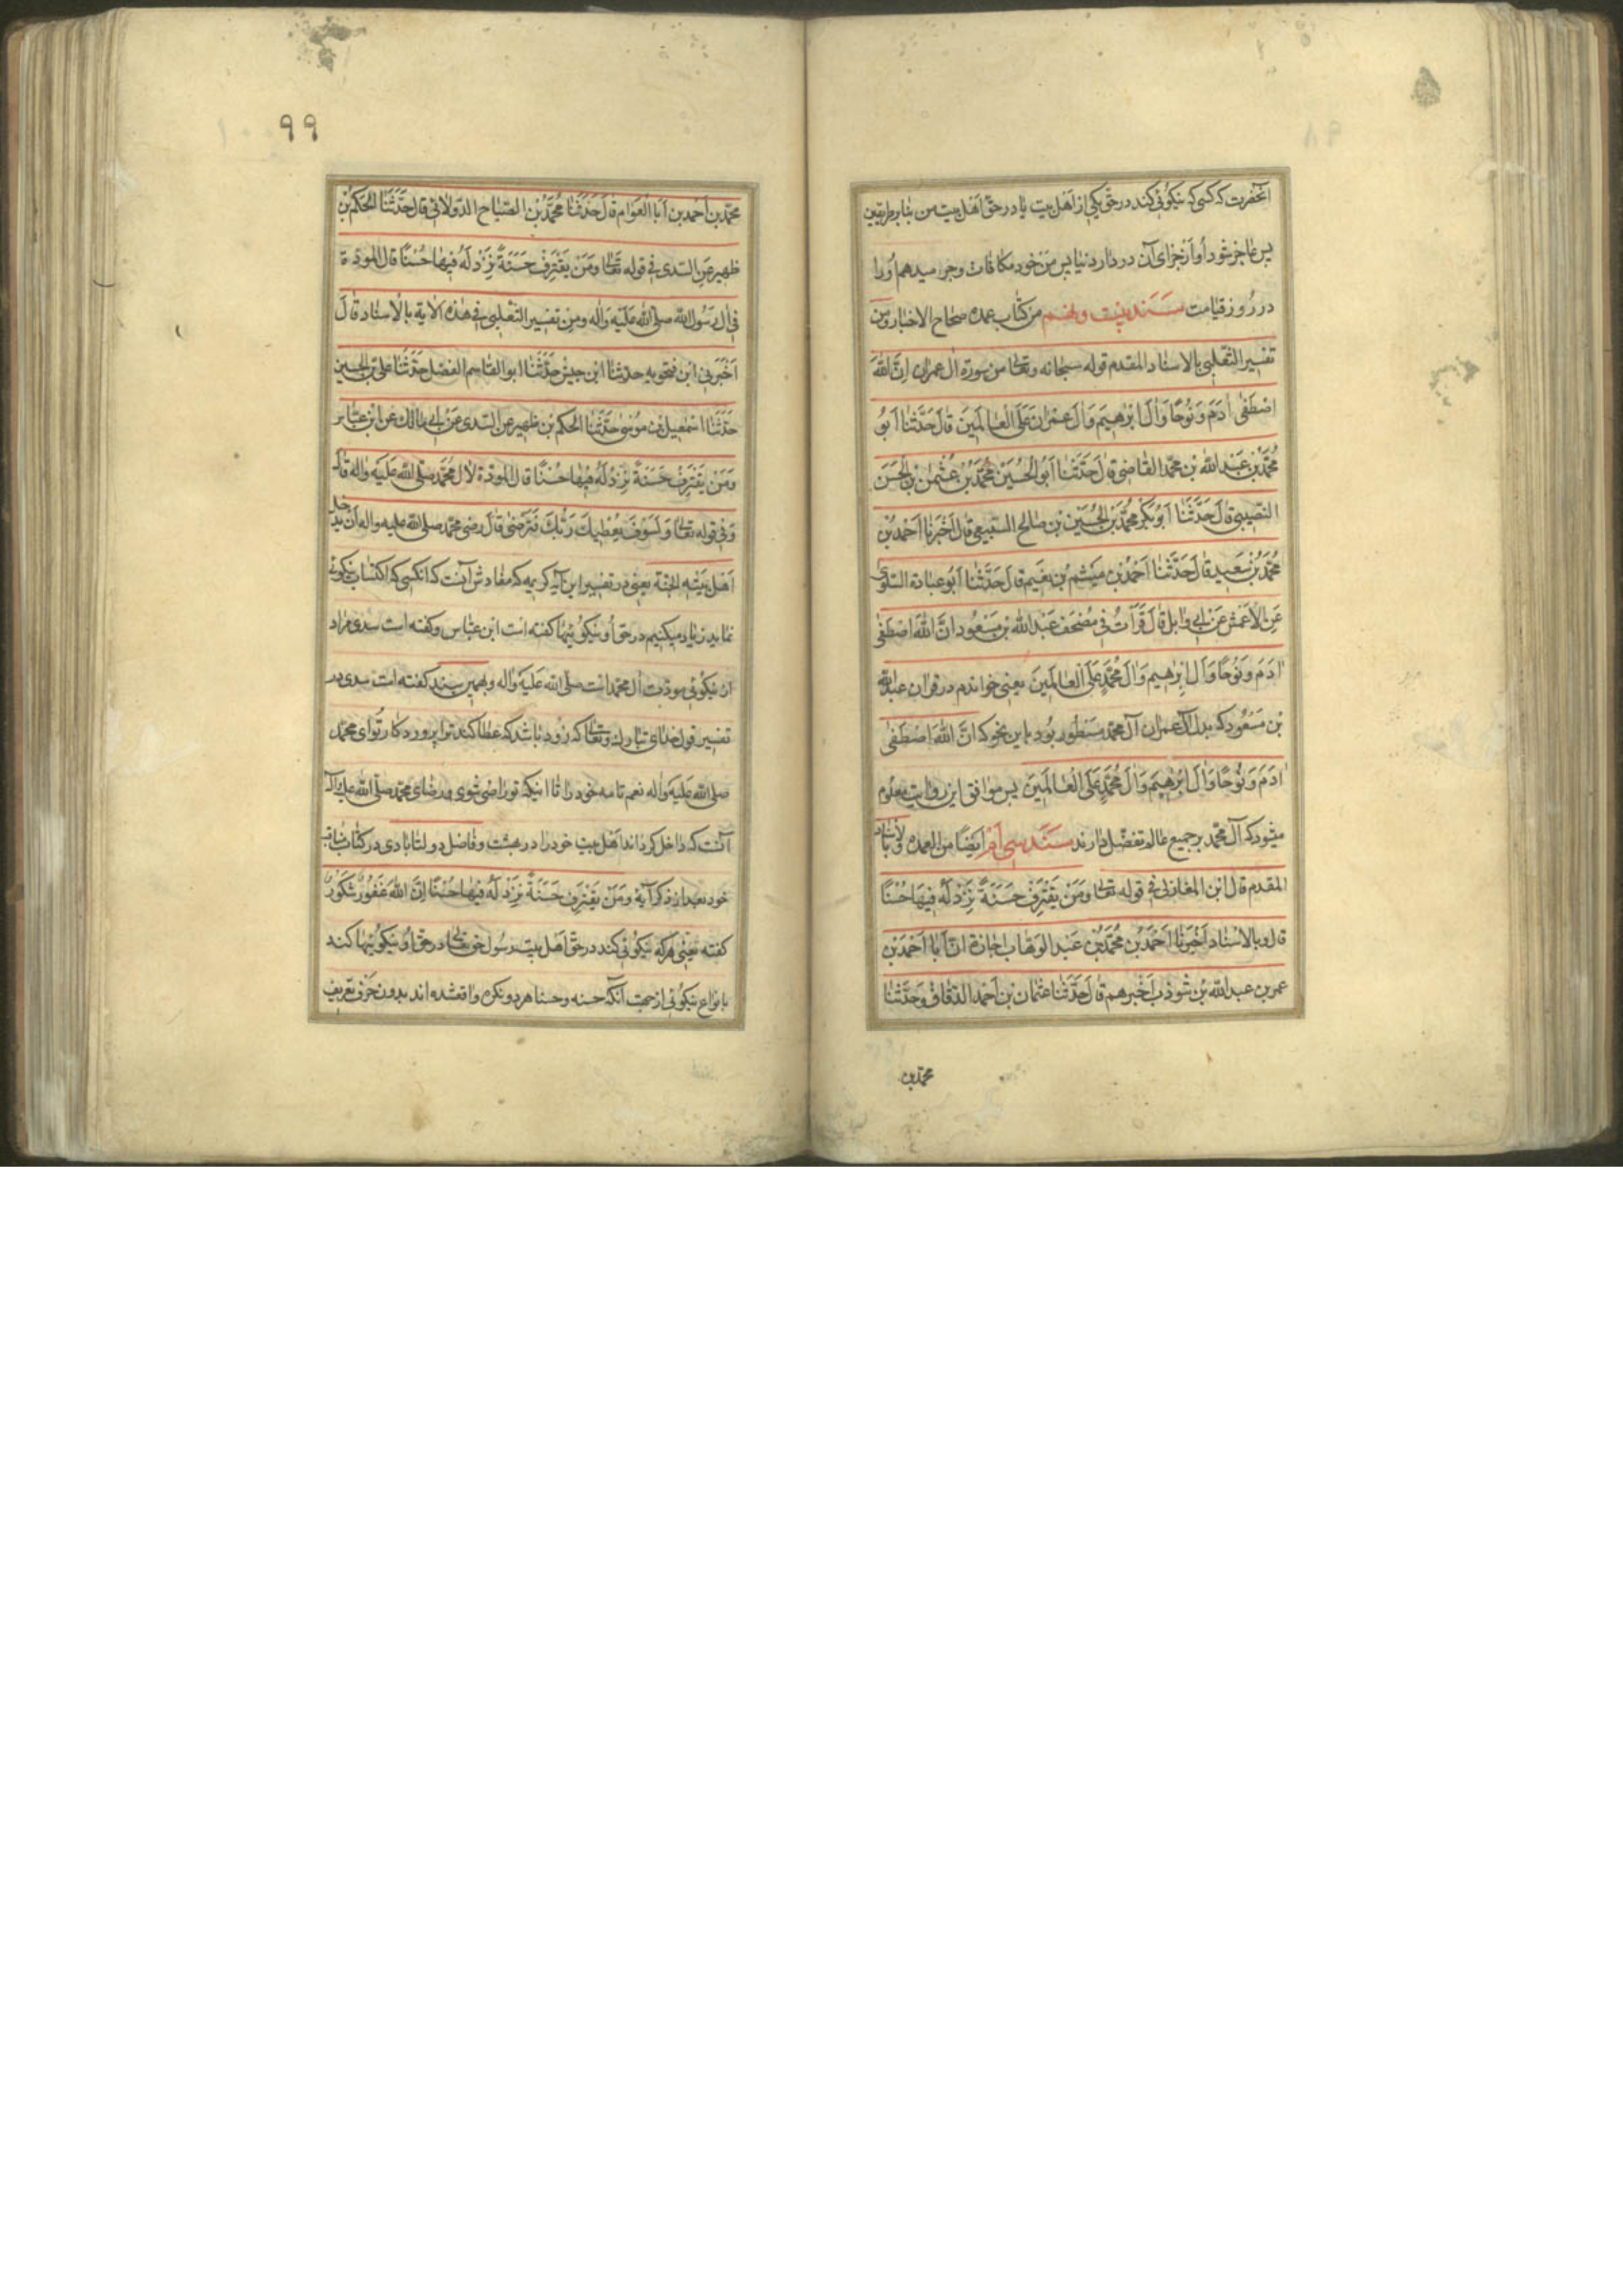 آنحضرت که کسی که نیکوئی کند در حق یکی از اهل بیت یا در حق اهل بیت من بنابر طریقین
پس عاجز شود او از جزای آن در دار دنیا پس من خود مکافات و جزا میدهم او را
در روز قیامت سند بیست و نهم من کتاب عمده صحاح الاخبار و من
تفسیر الثعلبی بالاسناد المقدم قوله سبحانه وتعالی من سورة ال عمران اِنَّ اللّٰهَ
اصْطَفٰی اٰدَمَ وَنُوحًا وَاٰلَ اِبْرٰهِیمَ وَاٰلَ عِمْرٰنَ عَلَی الْعٰالَمِینَ قٰالَ حَدَّثَنٰا اَبُو
مُحَمَّدِ بْنِ عَبْدِ اللّٰه بْنِ مُحَمَّد القٰاضی قٰالَ حَدَّثَنٰا اَبُو الْحُسَیْنِ مُحَمَّدُ بْنُ عُثْمٰنَ بْنِ الْحَسَنِ
النصیبی قٰالَ حَدَّثَنٰا اَبُو بَکْرٍ مُحَمَّدُ بْنُ الْحُسَیْنِ بْنِ صٰالِح السَّبیعی قٰالَ اَخْبَرَنٰا اَحْمَدُ بْنُ
مُحَمَّدِ بْنِ سَعِیدٍ قٰالَ حَدَّثَنٰا اَحْمَدُ بْنُ مِیْثَم بْنِ نعیم قٰالَ حَدَّثَنٰا اَبُو عبٰادة السلولی
عَنِ الْاَعْمَشِ عَنْ اَبِی وٰابِل قٰالَ قَرَأتُ فی مُصْحَفِ عَبْدِ اللّٰه بْنِ مَسْعُود اِنَّ اللّٰهَ اصْطَفٰی
اٰدَمَ وَنُوحًا وَاٰلَ اِبْرٰهِیمَ وَاٰلَ مُحَمَّدٍ عَلَی الْعٰالَمِینَ یعنی خواندم در قران عبد اللّٰه
بْن مَسْعُود که بدل آل عمران آل محمد مسطور بود باین نحو که اِنَّ اللّٰهَ اصْطَفٰی
اٰدَمَ وَنُوحًا وَاٰلَ اِبْرٰهِیمَ وَاٰلَ مُحَمَّدٍ عَلَی الْعٰالَمِینَ پس موافق این روایت معلوم
میشود که آل محمد بر جمیع عالم تفضل دارند سند سی ام ایضًا من العمده بالاسناد
المقدم قال ابن المغازلی فی قوله تعالی وَمَنْ یَقْتَرِفْ حَسَنَةً نَزِدْ لَهُ فِیهٰا حُسْنًا
قال وبالاسناد اَخْبَرَنٰا اَحْمَدُ بْنُ مُحَمَّدِ بْنِ عَبْدِ الوَهّاب اجٰازة انّ اَبٰا اَحْمَدَ بْنَ
عمر بن عبد اللّٰه بن شوذب اَخْبَرهم قٰالَ حَدَّثَنٰا عثمان بن اَحْمَد الدقّاق وَحَدَّثَنٰا
محمد بن
۹۹
محمّد بن اَحْمَد بن اَبٰا العوام قٰالَ حَدَّثَنٰا مُحَمَّدُ بْنُ الصَّبّاح الدولابی قٰالَ حَدَّثَنَا الْحَکَمُ بْنُ
ظهیر عَنِ السّدی فی قوله تعٰالی وَمَنْ یَقْتَرِفْ حَسَنَةً نَزِدْ لَهُ فِیهٰا حُسْنًا قال المودة
فی اٰل رَسُول اللّٰه صلی اللّٰه عَلَیْهِ وَاٰله ومن تفسیر الثَّعْلبی فی هٰذه الاٰیة بالْاسناد قٰالَ
اَخْبَرَنی ابن فنجویه حدثنا ابن حبش حَدَّثَنٰا ابو القٰاسم الفضل حَدَّثَنٰا علی بن الحسین
حَدَّثَنٰا اسْمٰعیل بن مُوسٰی حَدَّثَنَا الْحَکَم بْن ظهیر عن السّدی عَنْ اَبی مٰالک عن ابْن عبّاس
وَمَنْ یَقْتَرِفْ حَسَنَةً نَزِدْ لَهُ فِیهٰا حُسْنًا قال المودّة لاٰل مُحَمَّد صلّی اللّٰه عَلَیْهِ واٰله قال
وَفی قوله تعٰالی وَلَسَوْفَ یُعْطِیكَ رَبُّكَ فَتَرْضٰی قٰالَ رضی محمّد صلی اللّٰه علیه واله اَن یدخل
اَهْل بَیْته الجنّة یعنی در تفسیر این آیه کریمه که مفادش آنست که انکسی که اکتساب نیکوئی
نماید زیاد میکنیم در حق او نیکوئیها گفته است ابن عبّاس وگفته است سدی مراد
از نیکوئی مودّت اٰل محمد است صلّی اللّٰه عَلَیْهِ وَاٰله وبهمین سند گفته است سدی در
تفسیر قول خدای تبارك وتعٰالی که زود باشد که عطا کند ترا پروردکار تو ای محمّد
صلی اللّٰه عَلَیْهِ وَاٰله نعم تامه خود را تا اینکه تو راضی شوی و رضای محمّد صلّی اللّٰه علیه واٰله
آنست که داخل کرداند اهل بیت خود را در بهشت وفاضل دولتابادی در کتاب مناقب
خود بعد از ذکر آیة وَمَنْ یَقْتَرِفْ حَسَنَةً نَزِدْ لَهُ فِیهٰا حُسْنًا اِنَّ اللّٰهَ غَفُورٌ شَکُورٌ
گفته یعنی هرکه نیکوئی کند در حقّ اَهْل بیت رسول حق تعالی در حق او نیکوئیها کند
بانواع نیکوئی از جهت آنکه حسنه وحسنا هر دو نکره واقع شده اند بدون حرف تعریف